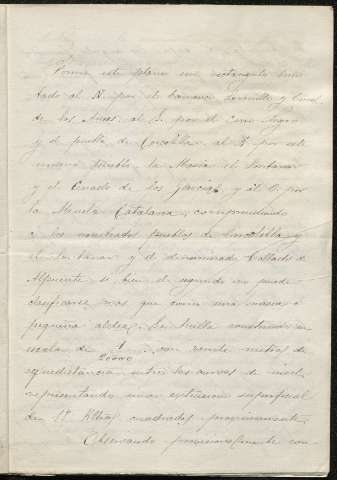 Forma este plano un rectangulo limi-
tado al N. por el barranco y
de las al S. por el Cerro Negro
y el pueblo de Corcolilla al E. por este
mismo pueblo, la el Montanar
y el Corral de los y al O. por
la Muela Catalana, comprendiendo
a los nombrados pueblos de Corcolilla y
el y el denominado Collado de
Alpuente si bien el segundo no puede
clasificarse mas que como una masia o
pequeña aldea. Se halla construido en
escala de 1/20000 con veinte metros de
equidistancia entre las curvas de nivel
representando una extension superficial
de 17 Kilom. cuadrados proximamente.
Observando provisionalmente con-